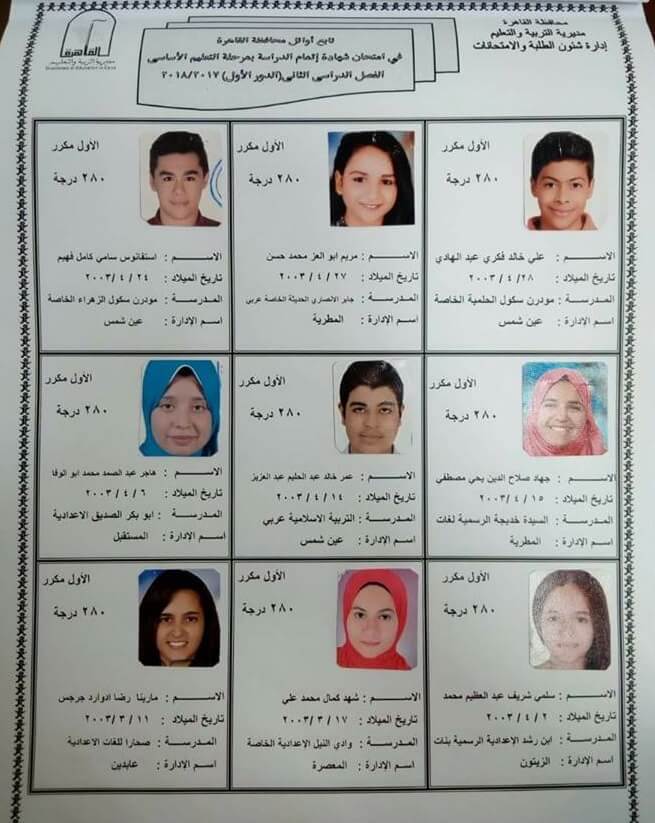 محافظة القاهرة
مديرية التربية والتعليم
إدارة شئون الطلبة والامتحانات
تابع أوائل محافظة القاهرة
في امتحان شهادة إتمام الدراسة بمرحلة التعليم الأساسى
الفصل الدراسى الثانى(الدور الأول) ٢٠١٨/٢٠١٧
القاهرة
مديرية التربية والتعليم
الأول مكرر
٢٨٠ درجة
الاسم : علي خالد فكري عبد الهادي
تاريخ الميلاد : ٢٨/ ٤/ ٢٠٠٣
المدرسة : مودرن سكول الحلمية الخاصة
اسم الإدارة : عين شمس
الأول مكرر
٢٨٠ درجة
الاسم : مريم ابو العز محمد حسن
تاريخ الميلاد : ٢٧ / ٤ / ٢٠٠٣
المدرسة : جابر الانصاري الحديثة الخاصة عربي
اسم الإدارة : المطرية
الأول مكرر
٢٨٠ درجة
الاسم : استفانوس سامي كامل فهيم
تاريخ الميلاد : ٢٤ / ٤ / ٢٠٠٣
المدرسة : مودرن سكول الزهراء الخاصة
اسم الإدارة : عين شمس
الأول مكرر
٢٨٠ درجة
الاسم : جهاد صلاح الدين يحي مصطفي
تاريخ الميلاد : ١٥ / ٤ / ٢٠٠٣
المدرسة : السيدة خديجة الرسمية لغات
اسم الإدارة : المطرية
الأول مكرر
٢٨٠ درجة
الاسم : عمر خالد عبد الحليم عبد العزيز
تاريخ الميلاد : ١٤ / ٤ / ٢٠٠٣
المدرسة : التربية الاسلامية عربي
اسم الإدارة : عين شمس
الأول مكرر
٢٨٠ درجة
الاسم : هاجر عبد الصمد محمد ابو الوفا
تاريخ الميلاد : ٦ / ٤ / ٢٠٠٣
المدرسة : ابو بكر الصديق الاعدادية
اسم الإدارة : المستقبل
الأول مكرر
٢٨٠ درجة
الاسم : سلمي شريف عبد العظيم محمد
تاريخ الميلاد : ٢ / ٤ / ٢٠٠٣
المدرسة : ابن رشد الإعدادية الرسمية بنات
اسم الإدارة : الزيتون
الأول مكرر
٢٨٠ درجة
الاسم : شهد كمال محمد علي
تاريخ الميلاد : ١٧ / ٣ / ٢٠٠٣
المدرسة : وادي النيل الإعدادية الخاصة
اسم الإدارة : المعصرة
الأول مكرر
٢٨٠ درجة
الاسم : مارينا رضا ادوارد جرجس
تاريخ الميلاد : ١١ / ٣ / ٢٠٠٣
المدرسة : صحارا للغات الاعدادية
اسم الإدارة : عابدين